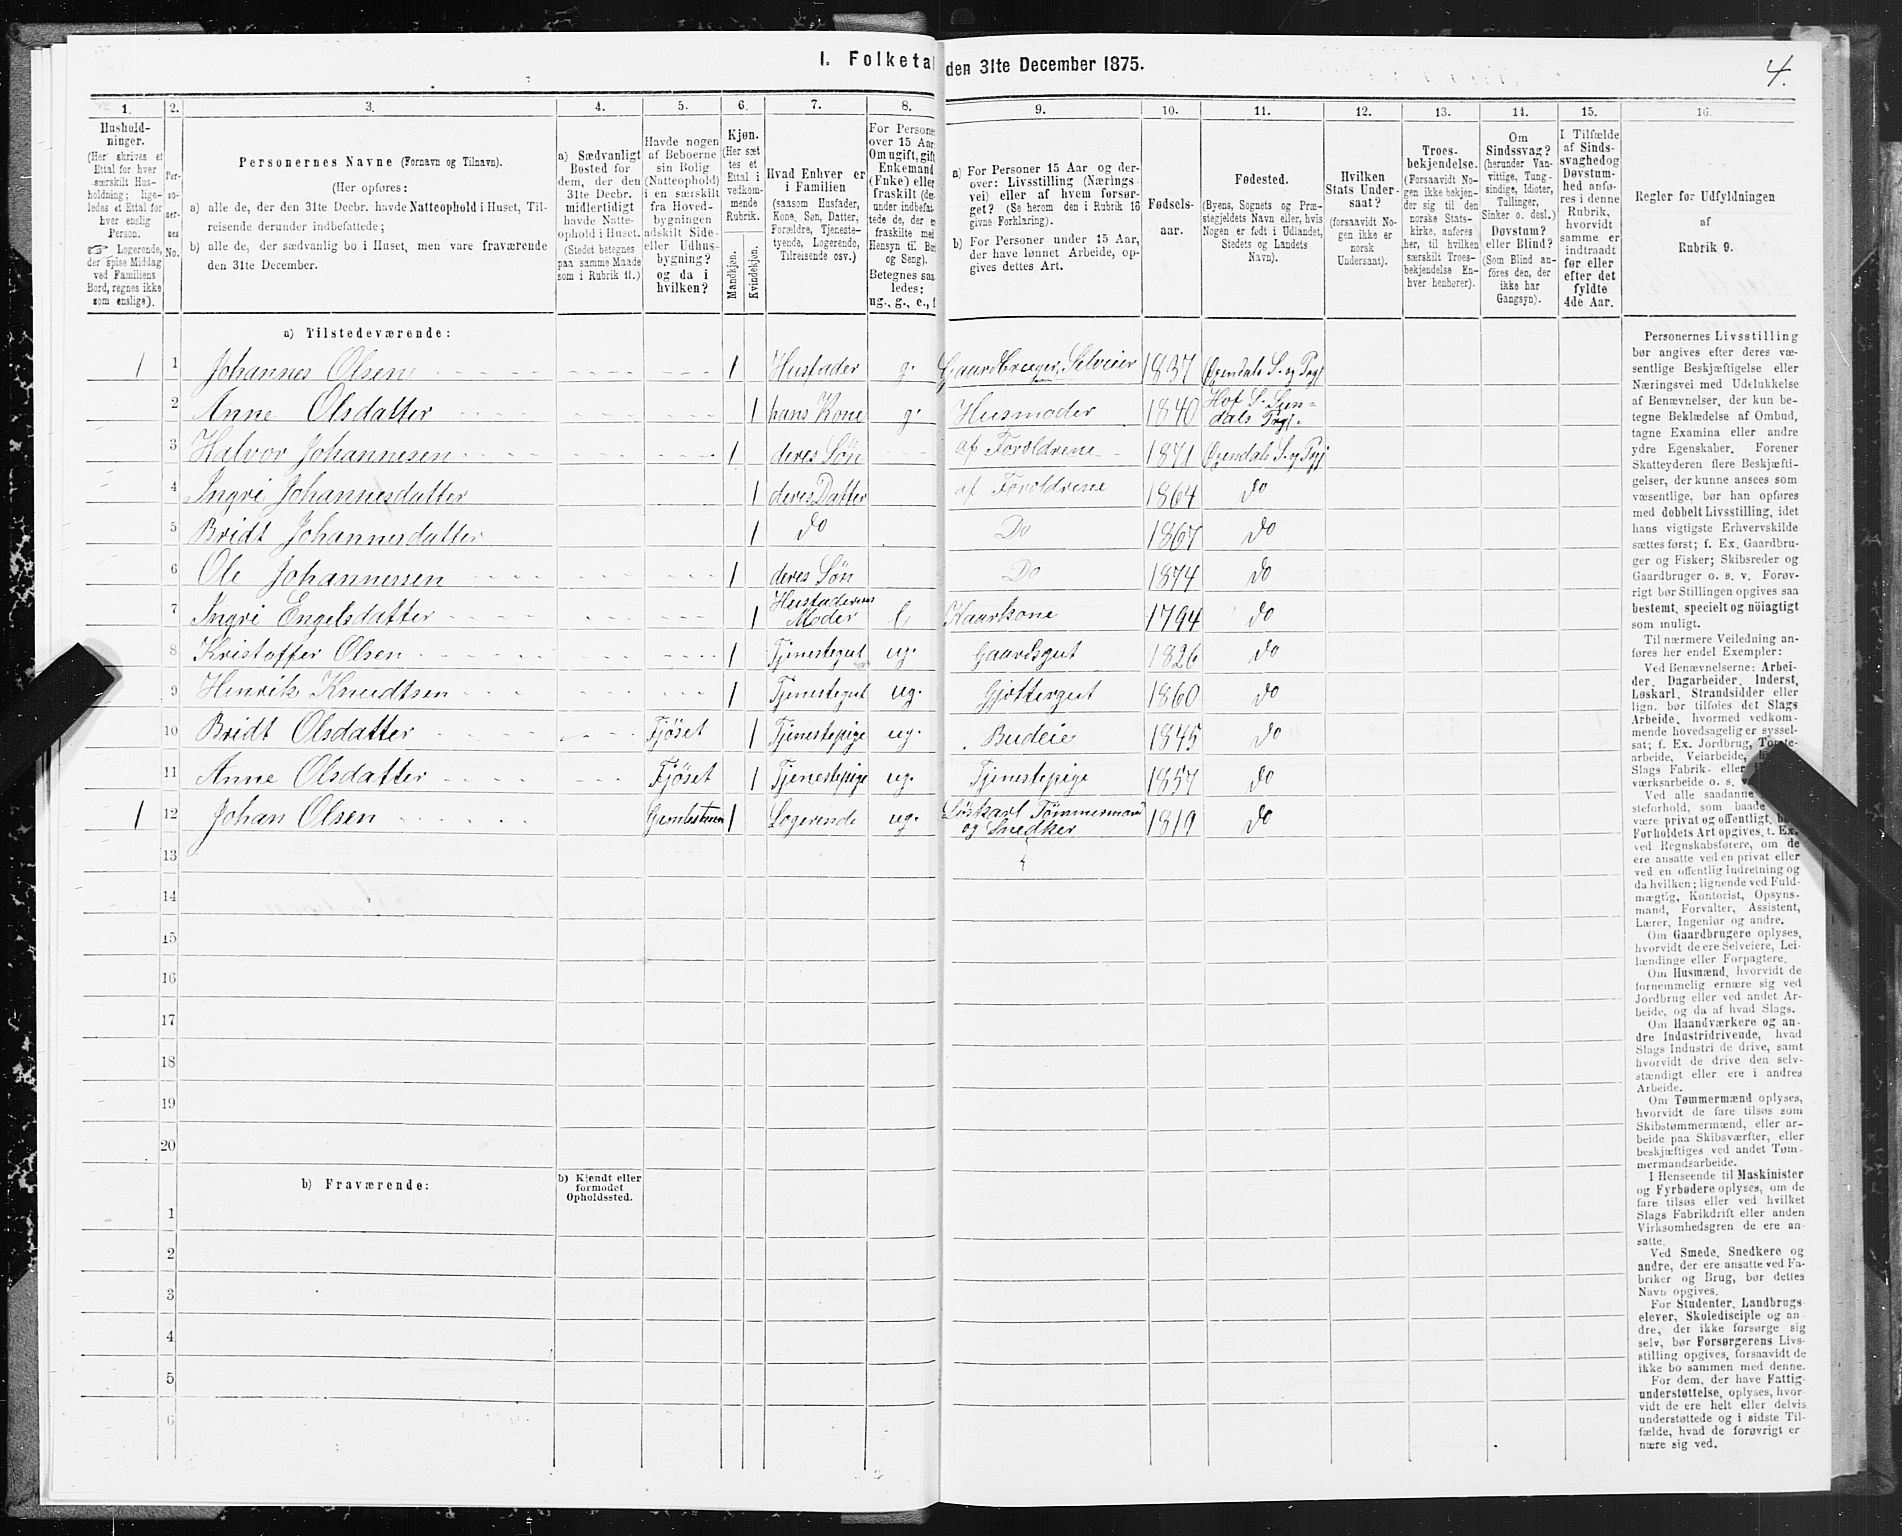 I. Folketal den 31te December 1875.
4.
1. 2. 3. 4. 5. 6. 7. 8. 9. 10. 11. 12. 13. 14. 15. 16.
Husholdninger.
(Her skrives et
Ettal for hver
særskilt Husholdning;
ligeledes et Ettal for
hver enslig
Person.
☞ Logerende,
der spise Middag
ved Familiens
Bord, regnes ikke
som enslige).
Personernes No.
Personernes Navne (Fornavn og Tilnavn).
(Her opføres:
a) alle de, der den 31te Decbr. havde Natteophold i Huset, Tilreisende derunder indbefattede;
b) alle de, der sædvanlig bo i Huset, men vare fraværende
den 31te December.
a) Sædvanligt
Bosted for
dem, der den
31te Decbr.
midlertidigt
havde Natteophold i Huset.
(Stedet betegnes
paa samme Maade
som i Rubrik 11.)
Havde nogen
af Beboerne
sin Bolig
(Natteophold)
i en særskilt
fra Hovedbygningen
adskilt Side-
eller Udhusbygning?
og da i
hvilken?
Kjøn.
(Her sættes et
Ettal i
vedkommende
Rubrik.
Mandkjøn.
Kvindekjøn.
Hvad Enhver er
i Familien
(saasom Husfader,
Kone, Søn, Datter,
Forældre, Tjenestetyende, Logerende,
Tilreisende osv.)
For Persone
over 15 Aar
Om ugift, gift
Enkemand
(Enke) eller
fraskilt (derunder indbefattede de, der ere
fraskilte med
Hensyn til Bord
og Seng).
Betegnes saaledes:
ug., g., e., f
a) For Personer 15 Aar og derover: Livsstilling (Næringsvei) eller af hvem forsørget? (Se herom den i Rubrik 16
givne Forklaring).
b) For Personer under 15 Aar,
der have lønnet Arbeide, opgives dettes Art.
Fødselsaar.
Fødested.
(Byens, Sognets og Præstegjeldets Navn eller, hvis
Nogen er født i Udlandet,
Stedets og Landets
Navn).
Hvilken
Stats Undersaat?
(forsaavidt Nogen ikke er
norsk
Undersaat).
Troesbekjendelse.
(Forsaavidt Nogen ikke bekjender sig til den
norske Statskirke, anføres
her, til hvilken
særskilt Troesbekjendelse Enhver henhører).
Om
Sindssvag?
(herunder Vanvittige, Tungsindige, Idioter,
Tullinger,
Sinker o. desl.)
Døvstum?
eller Blind?
(Som Blind anføres den, der
ikke har
Gangsyn).
I Tilfælde
af Sindssvaghed og
Døvstumhed anføres i denne
Rubrik,
hvorvidt
samme er
indtraadt
før eller
efter det
fyldte
4de Aar.
Regler for Udfyldningen
af
Rubrik 9.
a) Tilstedeværende:
1 1 Johannes Olsen 1 Husfader g. Gaardbruger, Selveier 1837 Øxendals S. og Prgj
2 Anne Olsdatter 1 hans Kone g. Husmoder 1840 Hof S. Sundals Prgj.
3 Halvor Johannesen 1 deres Søn af Foroldrene 1871 Øxendals S. og Prgj
4 Ingri Johannesdatter 1 deres Datter af Foroldrene 1864 do
5 Bridt Johannesdatter 1 do Do 1867 do
6 Ole Johannessen 1 deres Søn Do 1874 do
7 Ingri Engelsdatter 1 Husfaderens Moder e Kaarkone 1794 do
8 Kristoffer Olsen 1 Tjenestegut ug. Gaardsgut 1826 do
9 Henrik Knudtsen 1 Tjenestegut ug. Gjættergut 1860 do
10 Bridt Olsdatter Fjøset 1 Tjenestepige ug. Budeie 1845 do
11 Anne Olsdatter Fjøset 1 Tjenestepige ug. Tjenestepige 1857 do
1 12 Johan Olsen 1 Logerende ug. Løskarl Tømmermand og Snedker 1819 do
13
14
15
16
17
18
19
20
b) Fraværende:
b) Kjendt eller
formodet
Opholdssted.
1
2
3
4
5
6
Personernes Livsstilling
bør angives efter deres væsentlige Beskjæftigelse eller
Næringsvei med Udelukkelse
af Benævnelser, der kun betegne Beklædelse af Ombud,
tagne Examina eller andre
ydre Egenskaber. Forener
Skatteyderen flere Beskjæftigelser, der kunne ansees som
væsentlige, bør han opføres
med dobbelt Livsstilling, idet
hans vigtigste Erhvervskilde
sættes først; f. Ex. Gaardbruger og Fisker; Skibsreder og
Gaardbruger o. s. v. Forøvrigt bør Stillingen opgives saa
bestemt, specielt og nöiagtigt
som muligt.
Til nærmere Veiledning anføres her endel Exempler:
Ved Benævnelserne: Arbeider, Dagarbeider, Inderst,
Løskarl, Strandsidder eller
lign. bør tilføies det Slags
Arbeide, hvormed vedkommende hovedsagelig er sysselsat; f. Ex. Jordbrug, Tomtearbeide, Veiarbeide,
Slags Fabrik- eller
værksarbeide o. s. v.
Ved alle saadanne
steforhold, som baade
være privat og offentligt, bør
Forholdets Art opgives, t. Ex.
ved Regnskabsførere, om de
ere ansatte ved en privat eller
ved en offentlig Indretning og
da hvilken; lignende ved Fuldmægtig, Kontorist, Opsynsmand, Forvalter, Assistent,
Lærer, Ingeniør og andre.
Om Gaardbrugere oplyses,
hvorvidt de ere Selveiere, Leilændinge eller Forpagtere.
Om Husmænd, hvorvidt de
fornemmelig ernære sig ved
Jordbrug eller ved andet Arbeide, og da af hvad Slags.
Om Haandværkere og andre Industridrivende, hvad
Slags Industri de drive, samt
hvorvidt de drive den selvstændigt eller ere i andres
Arbeide.
Om Tømmermænd oplyses,
hvorvidt de fare tilsøs som
Skibstømmermænd, eller arbeide paa Skibsværfter, eller
beskjæftiges ved andet Tømmermandsarbeide.
I Henseende til Maskinister
og Fyrbødere oplyses, om de
fare tilsøs eller ved hvilket
Slags Fabrikdrift eller anden
Virksomhedsgren de ere ansatte.
Ved Smede, Snedkere og
andre, der ere ansatte ved Fabriker og Brug, bør dettes
Navn opgives.
For Studenter, Landbrugselever, Skoledisciple og andre, der ikke forsørge sig
selv, bør Forsørgerens Livsstilling opgives, forsaavidt de
ikke bo sammen med denne.
For dem, der have Fattigunderstøttelse, oplyses, hvorvidt de ere helt eller delvis
understøttede og i sidste Tilfælde, hvad de forøvrigt ernære sig ved.